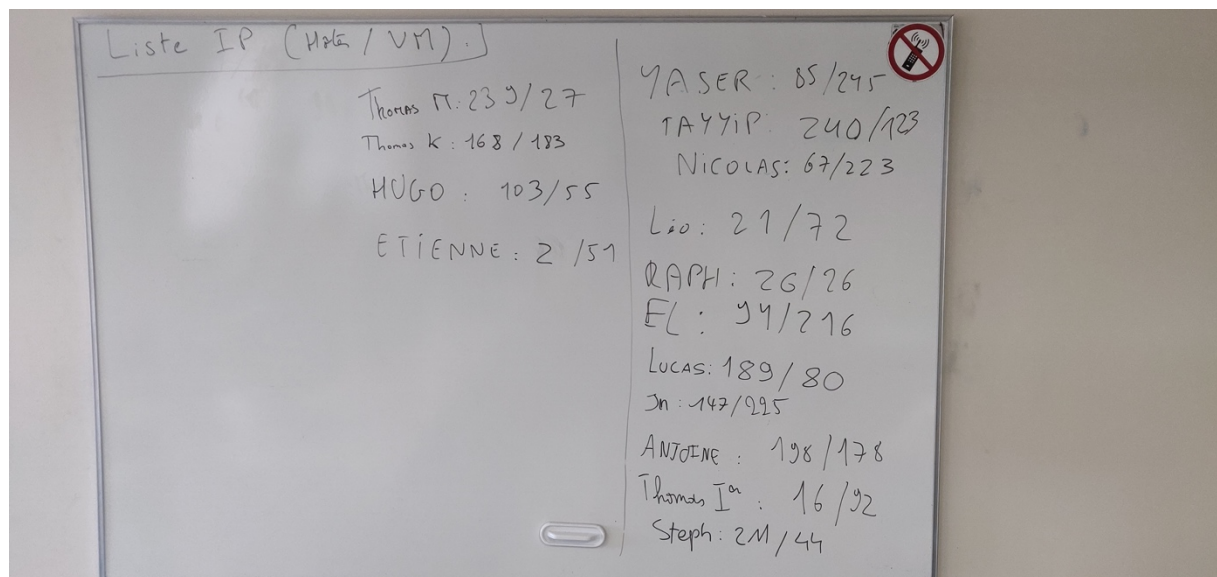 Liste IP (Hôte / VM).
Thomas M: 239/27
Thomas K : 168 / 183
HUGO : 103/55
ETIENNE : 2 /51
YASER : 85/245
TAYYIP : 240/123
NICOLAS: 67/223
Léo: 21/72
RAPH: 26/26
EL : 94/216
LUCAS: 189/80
Jn : 147/225
ANTOINE : 198/178
Thomas Ier : 16/92
Steph: 211/44